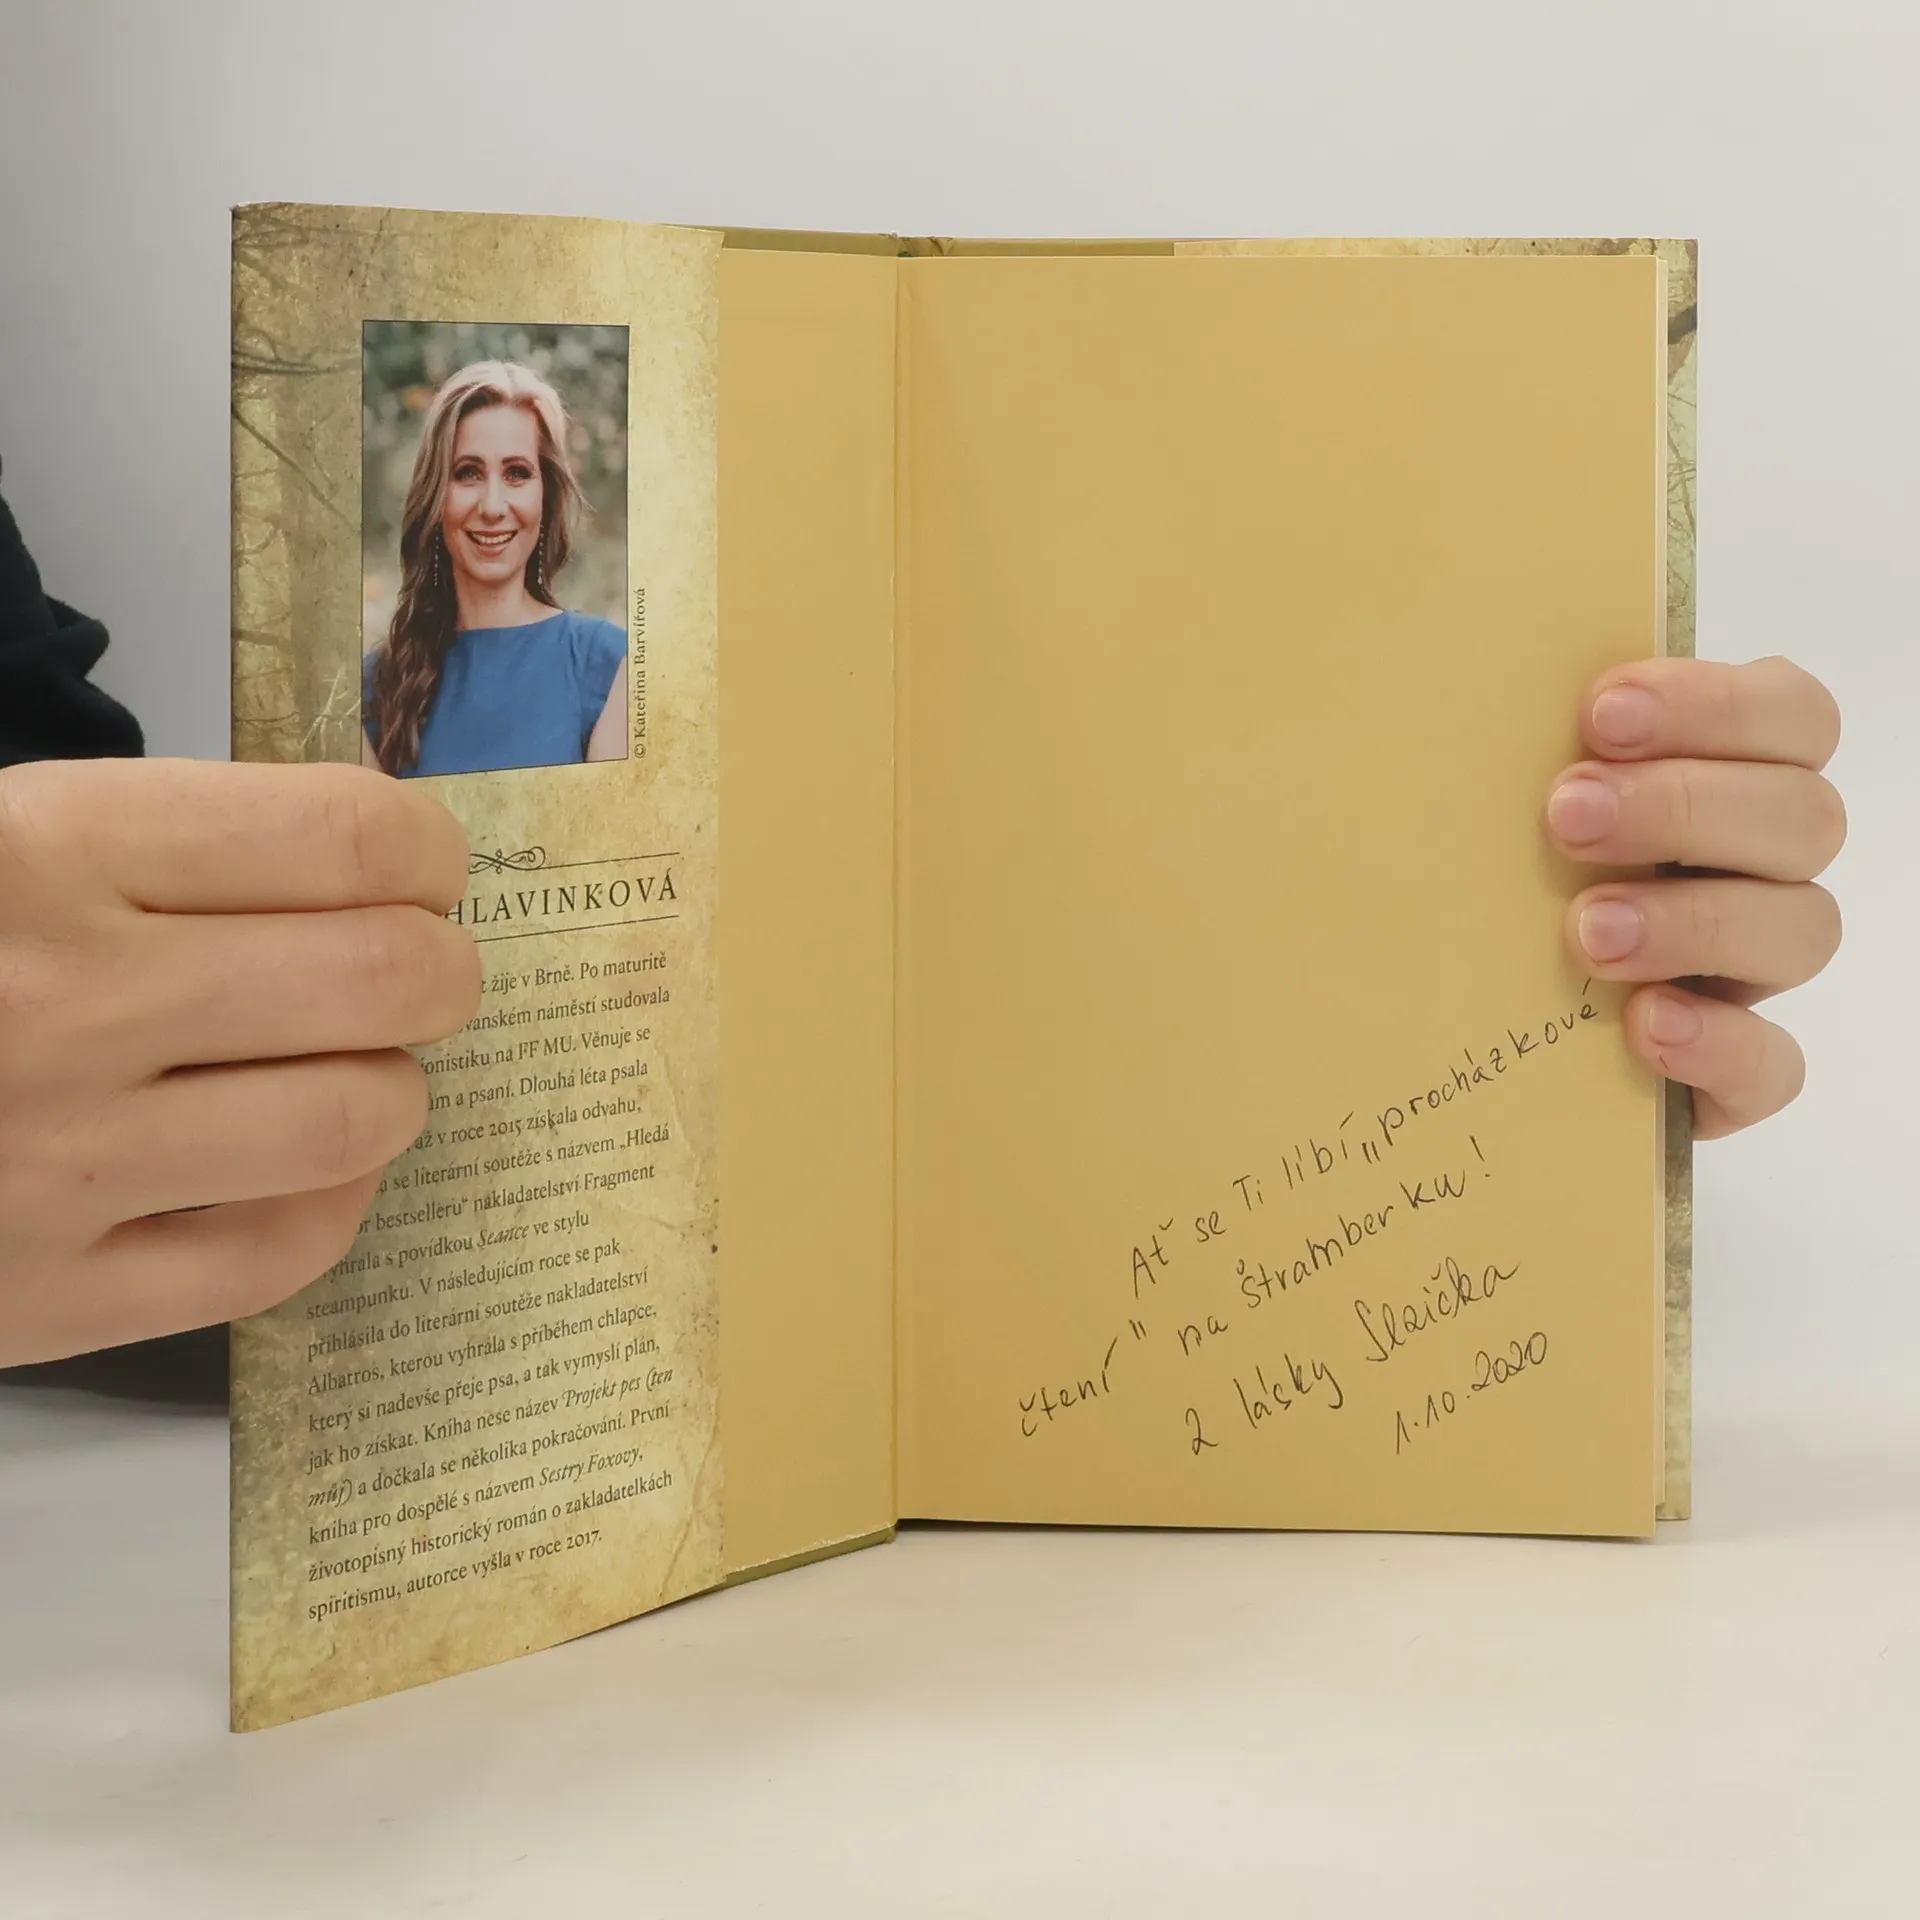 © Kateřina Barvířová
HLAVINKOVÁ
žije v Brně. Po maturitě
náměstí studovala
na FF MU. Věnuje se
a psaní. Dlouhá léta psala
až v roce 2015 získala odvahu,
se literární soutěže s názvem „Hledá
bestselleru“ nakladatelství Fragment
vyhrála s povídkou Seance ve stylu
steampunku. V následujícím roce se pak
přihlásila do literární soutěže nakladatelství
Albatros, kterou vyhrála s příběhem chlapce,
který si nadevše přeje psa, a tak vymyslí plán,
jak ho získat. Kniha nese název Projekt pes (ten
můj) a dočkala se několika pokračování. První
kniha pro dospělé s názvem Sestry Foxovy,
životopisný historický román o zakladatelkách
spiritismu, autorce vyšla v roce 2017.
Ať se Ti líbí „procházkové
čtení" na Štramberku!
Z lásky
1.10.2020